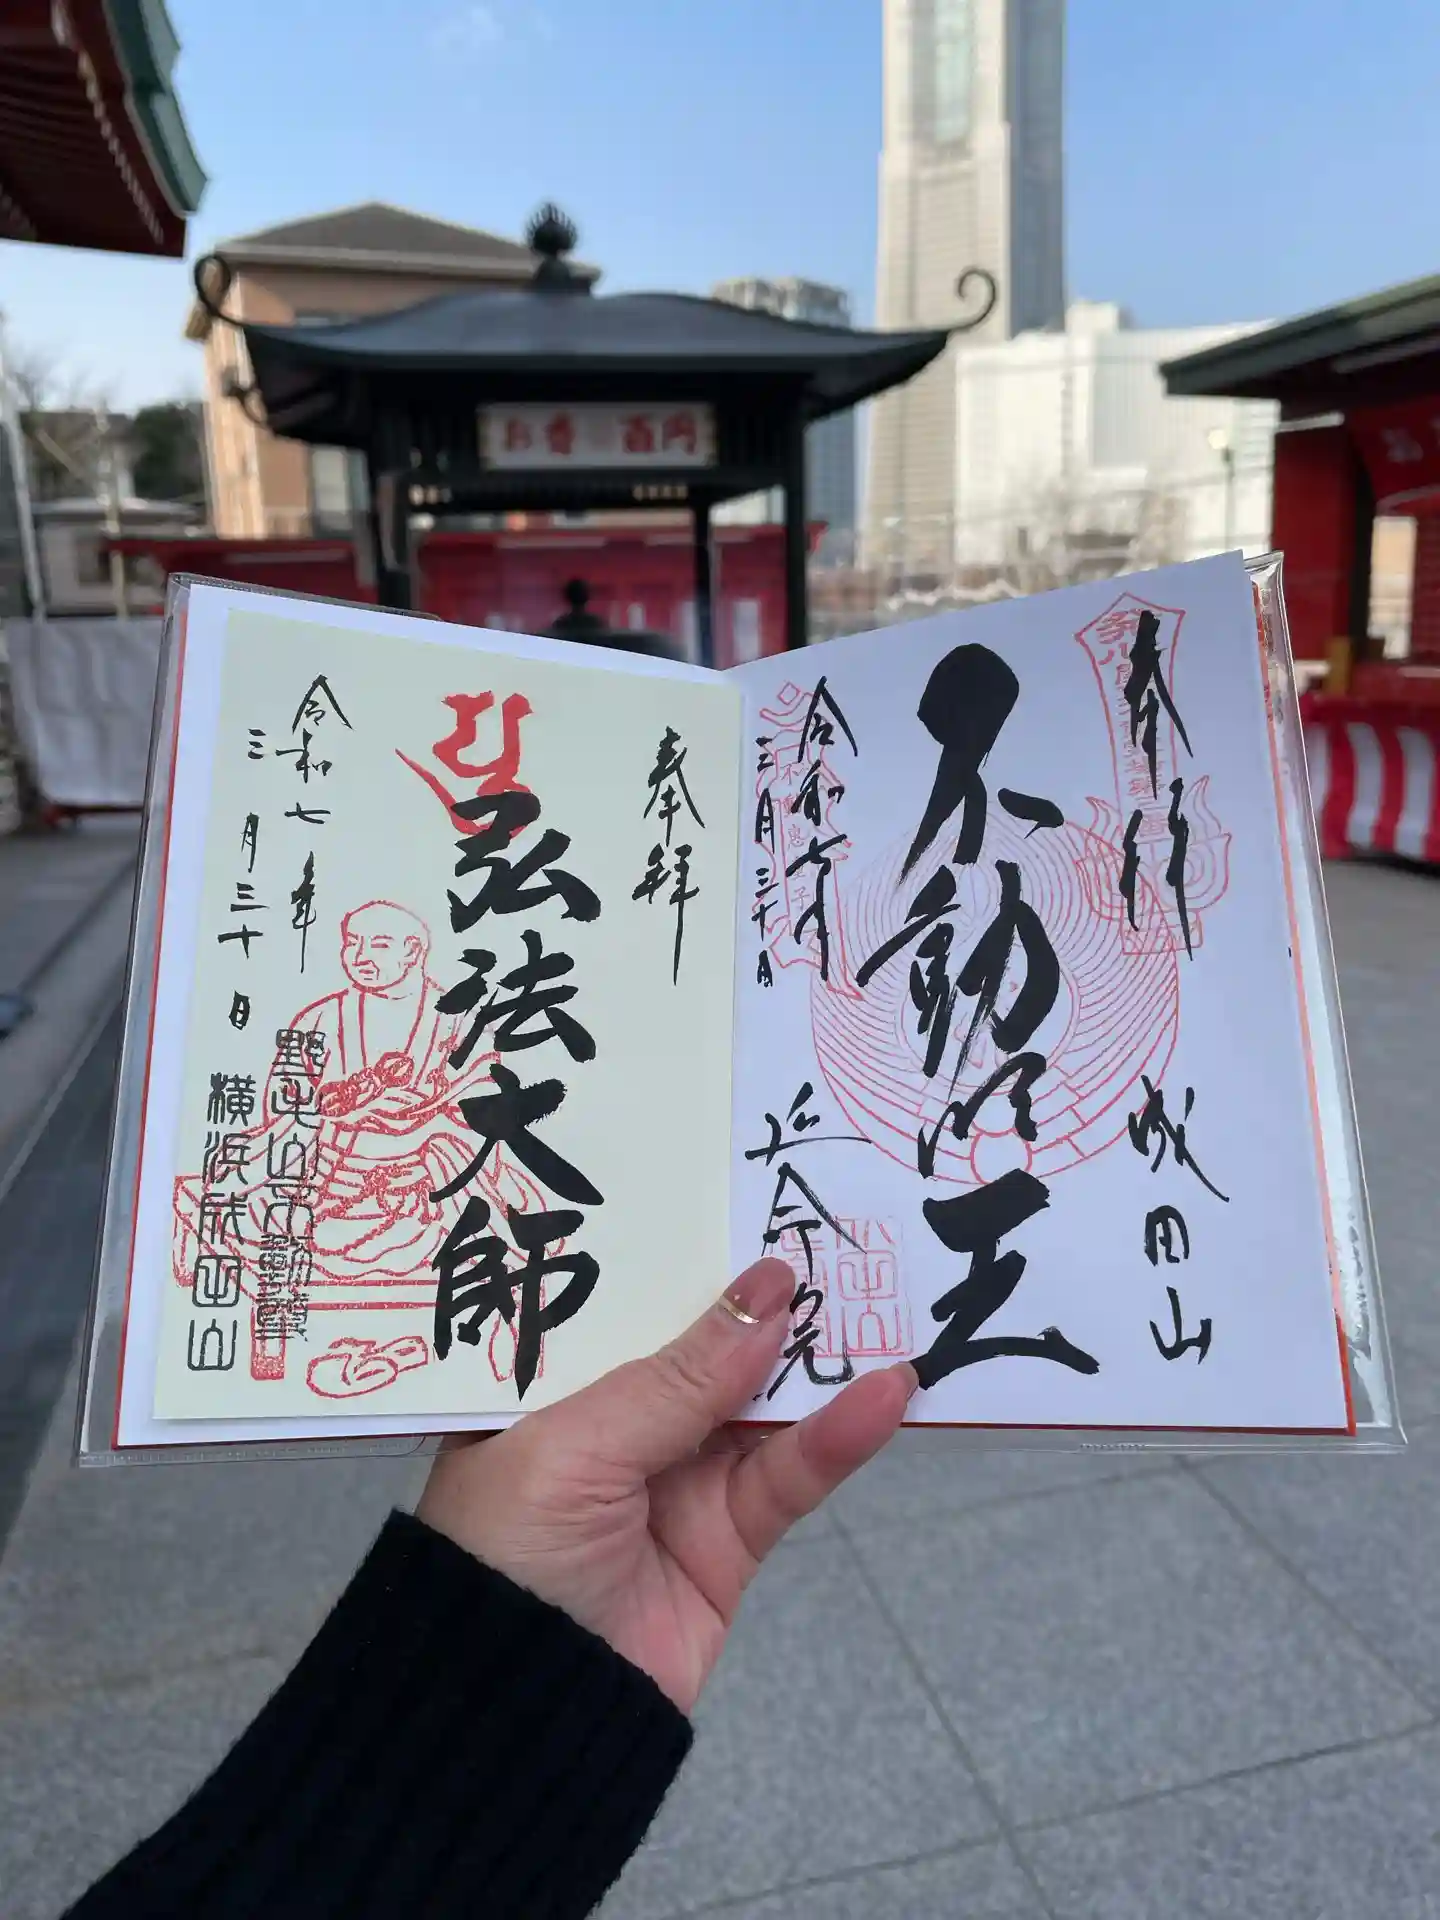 お香 百円
奉拝
不動明王
成田山
令和七年
三月三十日
延命院
奉拝
弘法大師
令和七年
三月三十日
野毛山不動尊
横浜成田山